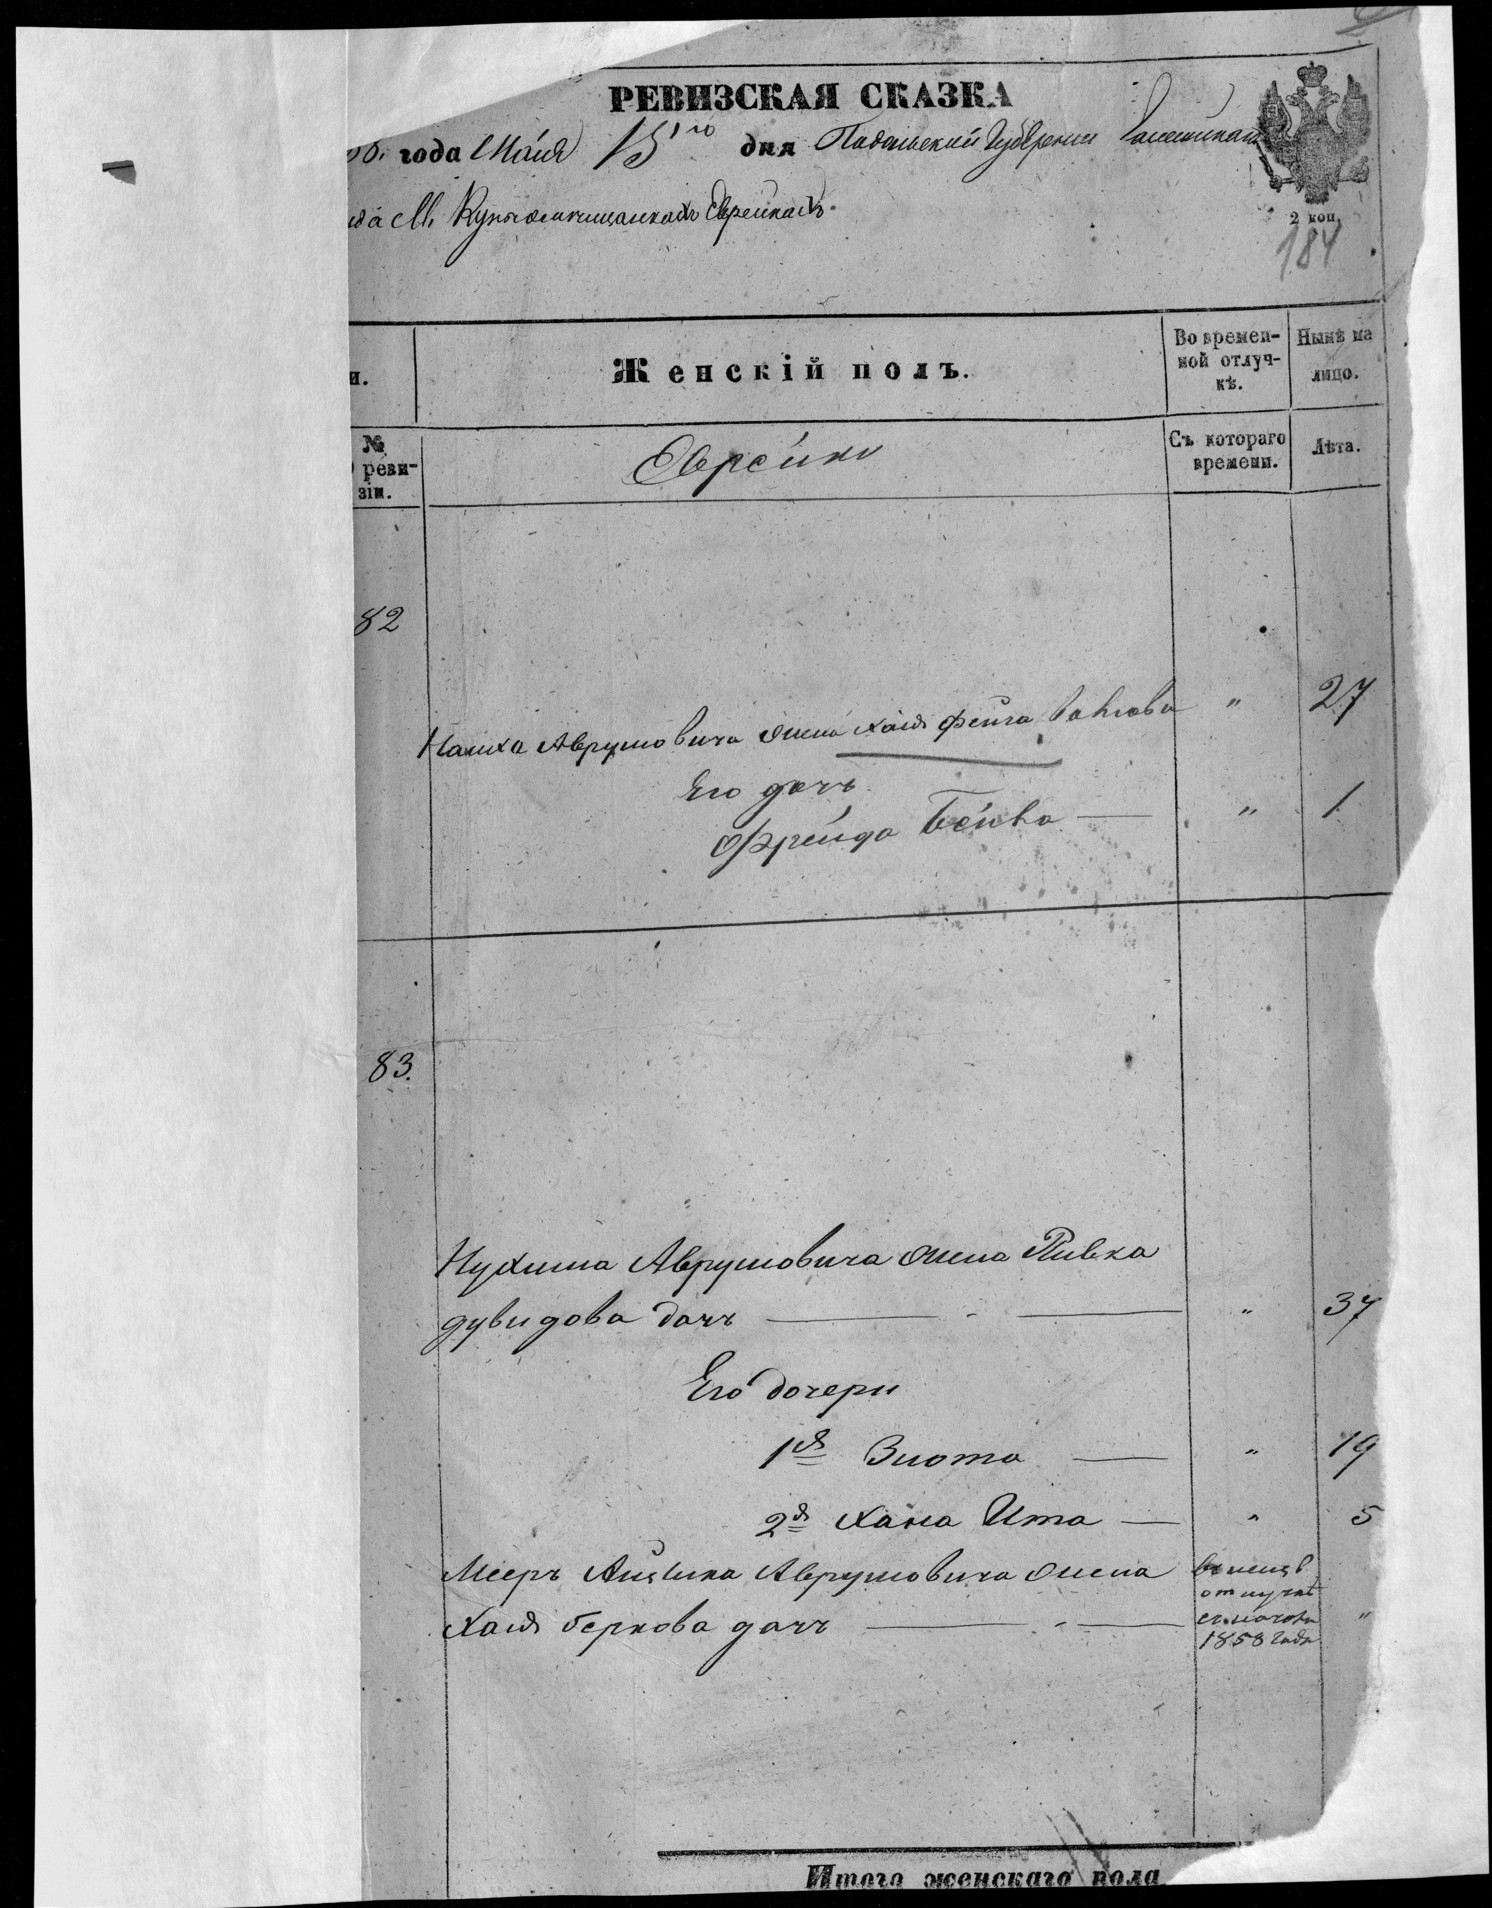 РЕВИЗСКАЯ СКАЗКА
года Маія 15го дня Подольской Губерніи
М. Еврейкахъ.
2 коп.
184
Женскій полъ.
Во времен-
ной отлуч-
кѣ.
Нынѣ на
лицо.
и.
№
реви-
зіи.
Еврейки
Съ котораго
времени.
Лѣта.
82
Аврумовича жена Хая Фейга " 27
Его дочь
Фрейда Бейла — " 1
83.
Нухима Аврумовича жена Ривка
дувидова дочь — - — " 37
Его дочери
1я Злота — " 19
2я Хана Ита — " 5
Меера Айзика Аврумовича жена
Хая беркова дочь — - — "
отлучкѣ
1858 года
Итого женскаго пола